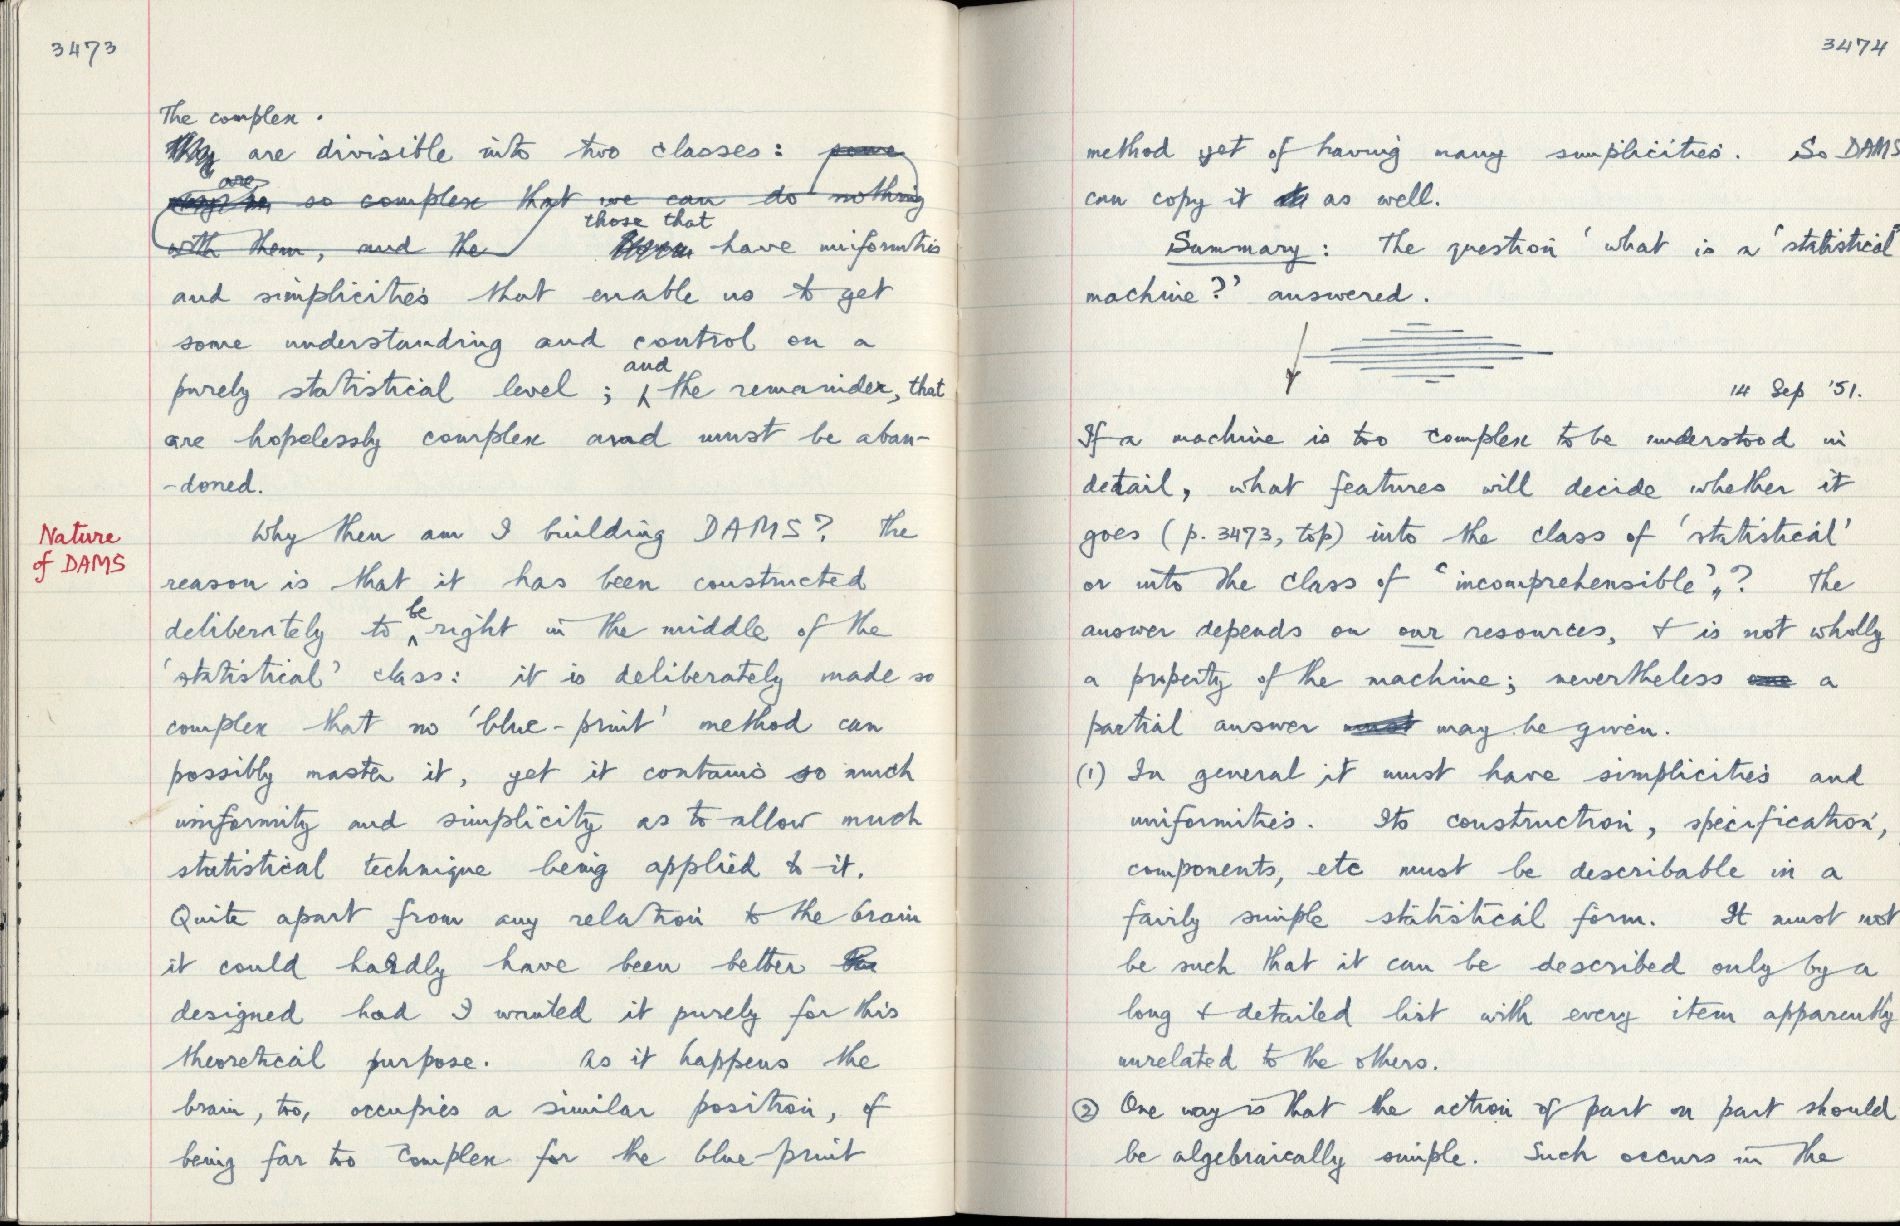 3473
The complex.
They are divisible into two classes: some
may be are so complex that we can do nothing
with them, and the those that have uniformities
and simplicities that enable us to get
some understanding and control on a
purely statistical level ; and the remainder, that
are hopelessly complex and must be aban-
-doned.
Nature
of DAMS
Why then am I building DAMS? The
reason is that it has been constructed
deliberately to be right in the middle of the
'statistical' class: it is deliberately made so
complex that no 'blue-print' method can
possibly master it, yet it contains so much
uniformity and simplicity as to allow much
statistical technique being applied to it.
Quite apart from any relation to the brain
it could hardly have been better
designed had I wanted it purely for this
theoretical purpose. As it happens the
brain, too, occupies a similar position, of
being far too complex for the blue-print
3474
method yet of having many simplicities. So DAMS
can copy it as well.
Summary: The question 'what is a 'statistical'
machine?' answered.
14 Sep '51.
If a machine is too complex to be understood in
detail, what features will decide whether it
goes (p. 3473, top) into the class of 'statistical'
or into the class of 'incomprehensible'? The
answer depends on our resources, & is not wholly
a property of the machine; nevertheless one a
partial answer must may be given.
(1) In general it must have simplicities and
uniformities. Its construction, specification,
components, etc must be describable in a
fairly simple statistical form. It must not
be such that it can be described only by a
long & detailed list with every item apparently
unrelated to the others.
(2) One way is that the action of part on part should
be algebraically simple. Such occurs in the